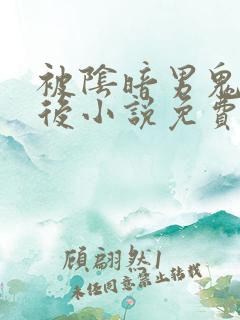 被陰暗男鬼
後小說免費
顧翩然1
未经同意禁止转载